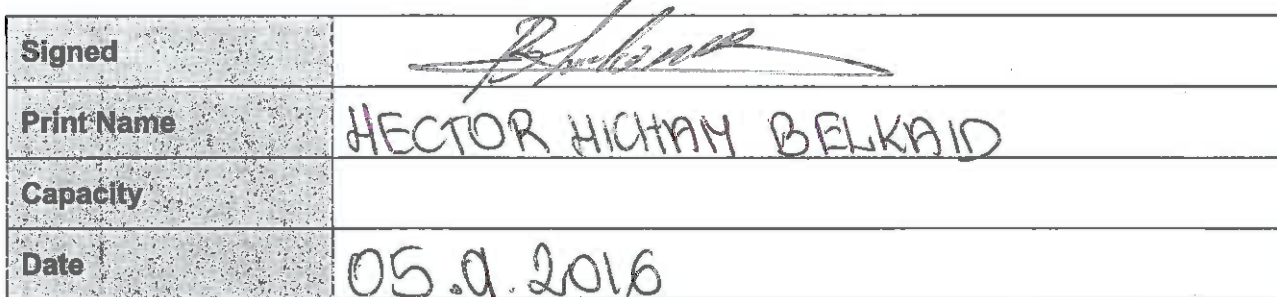 Signed
Print Name HECTOR HICHAM BELKAID
Capacity
Date 05.9.2016